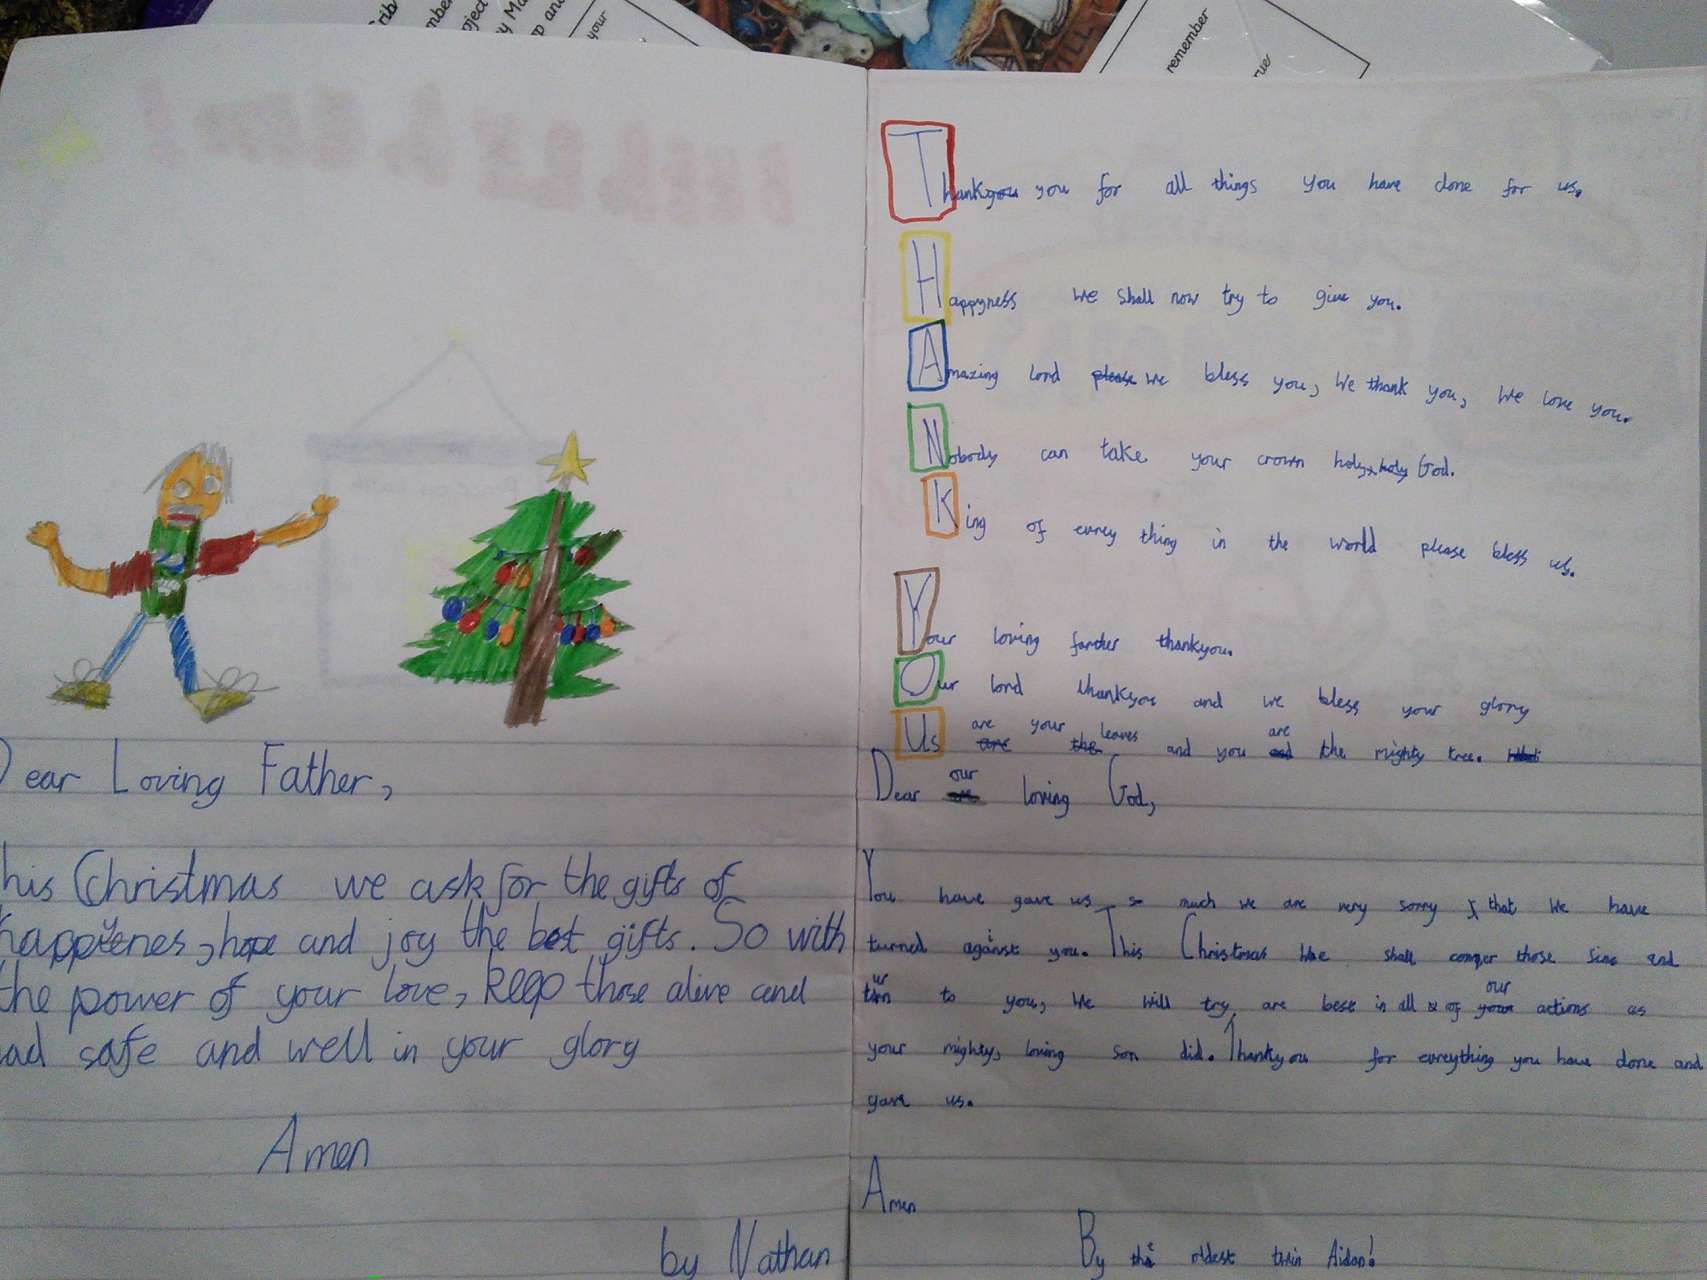 remember
your
Dear Loving Father,
his Christmas we ask for the gifts of
happienes, hope and joy the best gifts. So with
the power of your love, keep those alive and
ad safe and well in your glory
Amen
by Nathan
Thankyou you for all things you have done for us.
Happyness we shall now try to give you.
Amazing lord please we bless you, we thank you, we love you.
Nobody can take your crown holy, holy God.
King of evrey thing in the world please bless us.
Your loving farther thankyou.
Our lord thankyou and we bless your glory
Us are your leaves and you are the mighty tree.
Dear our loving God,
You have gave us so much we are very sorry that we have
turned against you. This Christmas we shall conqer those sins and
turn to you, we will try are best in all of our actions as
your mighty, loving son did. Thankyou for evreything you have done and
gave us.
Amen
By the oldest twin Aidan!